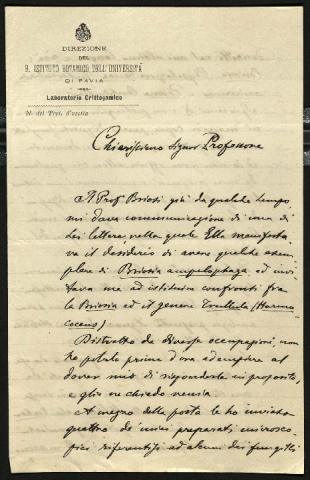 DIREZIONE
DEL
R. ISTITUTO BOTANICO DELL'UNIVERSITÀ
DI PAVIA
Laboratorio Crittogamico
N. del Prot. d'uscita
Chiarissimo Signor Professore
Il Prof. Briosi, già da qualche tempo,
mi dava communicazione di una di
Lei lettera, nella quale Ella manifesta-
va il desiderio di avere qualche esem-
plare di Briosia ampelophaga ed invi-
tava me ad istituire confronti fra
la Briosia ed il genere Trullula (Hormo-
coccus)
Distratto da diverse occupazioni, non
ho potuto prima d'ora adempiere al
dover mio di risponderle in proposito,
e gliene chiedo venia.
A mezzo della posta le ho inviato
quattro de' miei preparati microsco-
pici riferentisi ad alcuni dei funghilli